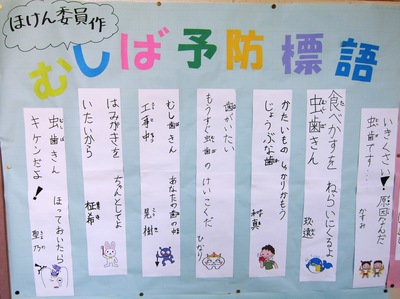 ほけん委員作
むしば予防標語
いきくさい！原因なんだ
虫歯です…
かすみ
食べかすを ねらいにくるよ
虫歯きん
玖遠
かたいもの しっかりかもう
じょうぶな歯
歯がいたい
もうすぐ虫歯の けいこくだ
ひなり
むし歯きん あなたの歯の中
工事中
晃樹
はみがきを ちゃんとしてよ
いたいから
柾希
虫歯きん ほっておいたら
キケンだよ！
聖乃